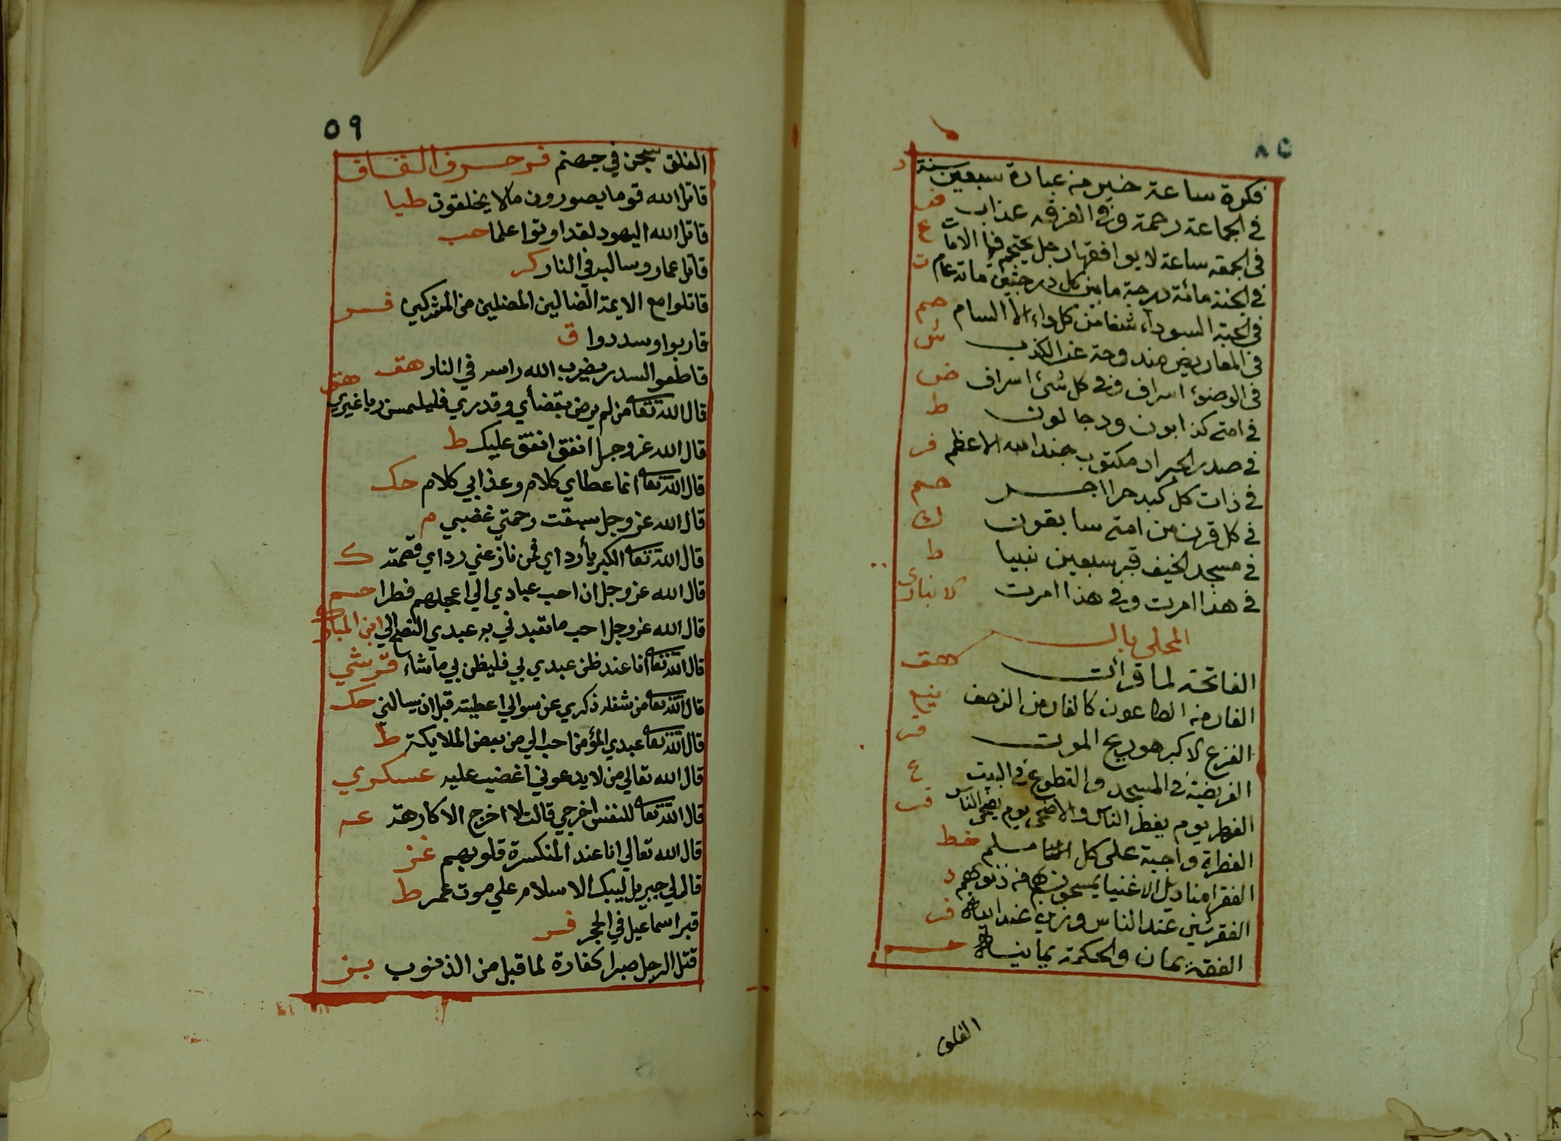 ٥٨
فكرة ساعة خير من عبادة سبعين سنة د
في الجماعة رحمة وفي الفرقه عذاب
في الجمعة ساعة لا يوافقها رجل يحتجم فيها الامات ع
في الجنة مائة درجة ما بين كل درجتين مائة عام ت
في الحبة السوداء شفا من كل داء الا السام حم
في المعاريض مندوحة عن الكذب
في الوضوء اسراف وفي كل شئ اسراف ض
في امتي كذابون ودجالون ط
في صدر الجراد مكتوب جند الله الاعظم فر
في ذات كل كبد حرا اجر حم
في كل قرن من امتي سابقون ك
في مسجد الخيف قبر سبعين نبيا ط
في هذا امرت وفي هذا امرت الانباري
المحلى بال
الفاتحة لما قرأت هق
الفار من الطاعون كالفار من الزحف
الفزع الاكبر هو ريح الموت فر
الفريضة في المسجد والتطوع في البيت ع
الفطر يوم يفطر الناس والاضحى يوم يضحي الناس
الفطرة واجبة على كل مسلم خط
الفقرا مناديل الاغنيا يمسحون بهم من ذنوبهم
الفقر شين عند الناس وزين عند الله فر
الفقه يمان والحكمة يمانية حم
الفلق
٥٩
الفلق سجن في جهنم فر حرف القاف
قاتل الله قوما يصورون ما لا يخلقون طيا
قاتل الله اليهود لقد اوتوا علما حب
قاتل عمار وسالبه في النار كر
قاتلوا مع الايمة الضالين المضلين من المشركين فر
قاربوا وسددوا ق
قاطعوا السدر يضرب الله راسه في النار هق
قال الله تعا من لم يرض بقضاي وقدري فليلتمس ربا غيري هق
قال الله عز وجل انفق انفق عليك ط
قال الله تعا انما عطاي كلام وعذابي كلام حك
قال الله عز وجل سبقت رحمتي غضبي م
قال الله تعا الكبريا رداي فمن نازعني رداي قصمته ك
قال الله عز وجل ان احب عبادي الي اعجلهم فطرا حم
قال الله عز وجل احب ما تعبدني به عبدي النصح لي ابن المبارك
قال الله تعا انا عند ظن عبدي بي فليظن بي ما شاء قريشي
قال الله تعا من شغله ذكري عن سوالي اعطيته قبل ان يسالني حك
قال الله تعا عبدي المؤمن احب الي من بعض الملايكة ط
قال الله تعالي من لا يدعوني اغضب عليه عسكري
قال الله تعا للنفس اخرجي قالت لا اخرج الا كارهة عه
قال الله تعالي انا عند المنكسرة قلوبهم غز
قال لي جبريل ليبك الاسلام علي موت عمر ط
قبر اسماعيل في الحجر فر
قتل الرجل صبرا كفارة لما قبل من الذنوب بز